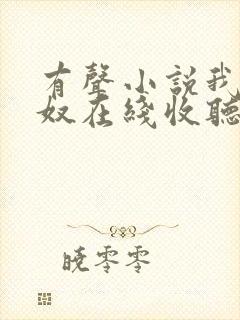 有聲小説我
奴在綫收聽
曉零零